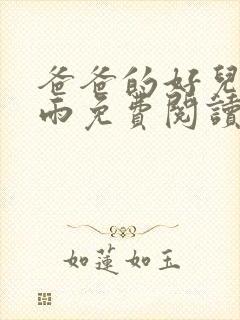 爸爸的好兒
雨免費閱讀
如蓮如玉